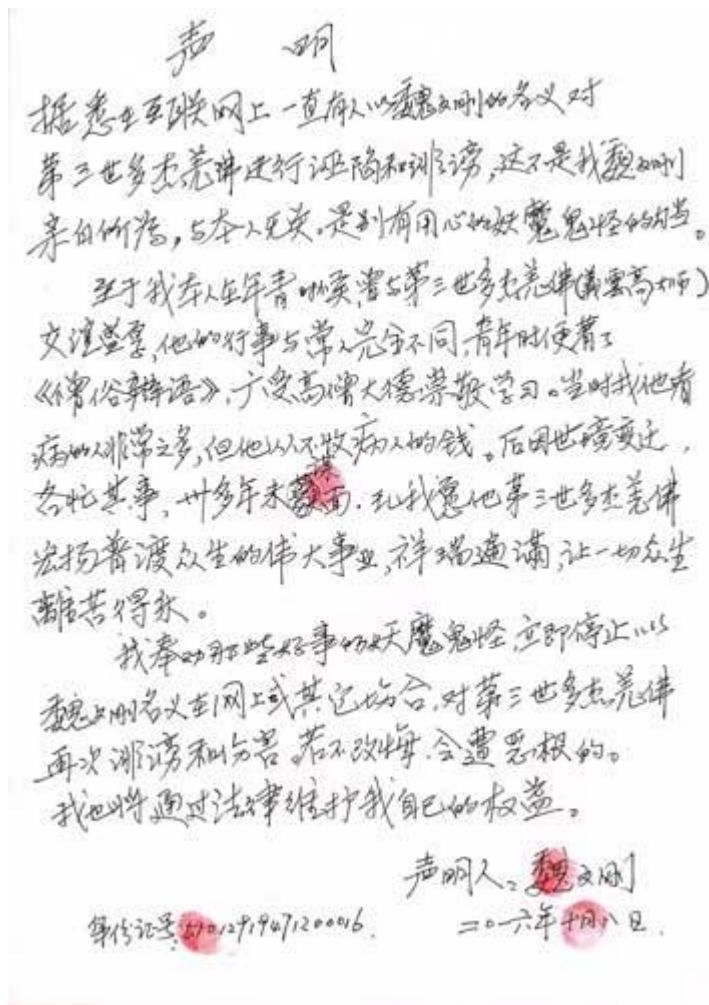 声 明
据悉在互联网上一直有人以魏文刚的名义对
第三世多杰羌佛进行诬陷和诽谤,这不是我魏文刚
亲自所为,与本人无关。是别有用心的妖魔鬼怪的勾当。
至于我本人在年青时候,曾与第三世多杰羌佛(義雲高大师)
交谊益厚,他的行事与常人完全不同,青年时便著了
《僧俗辩语》,广受高僧大德崇敬学习。当时找他看
病的人非常之多,但他从不收病人的钱。后因世境变迁,
各忙其事,卅多年未面.我愿他第三世多杰羌佛
宏扬普渡众生的伟大事业,祥瑞遍满,让一切众生
離苦得乐。
我奉劝那些好事的妖魔鬼怪,立即停止以
魏文刚名义在网上或其它场合,对第三世多杰羌佛
再次诽谤和伤害。若不改悔,会遭恶报的。
我也将通过法律维护我自己的权益。
声明人:魏文刚
身份证号:
二〇一六年十月八日.